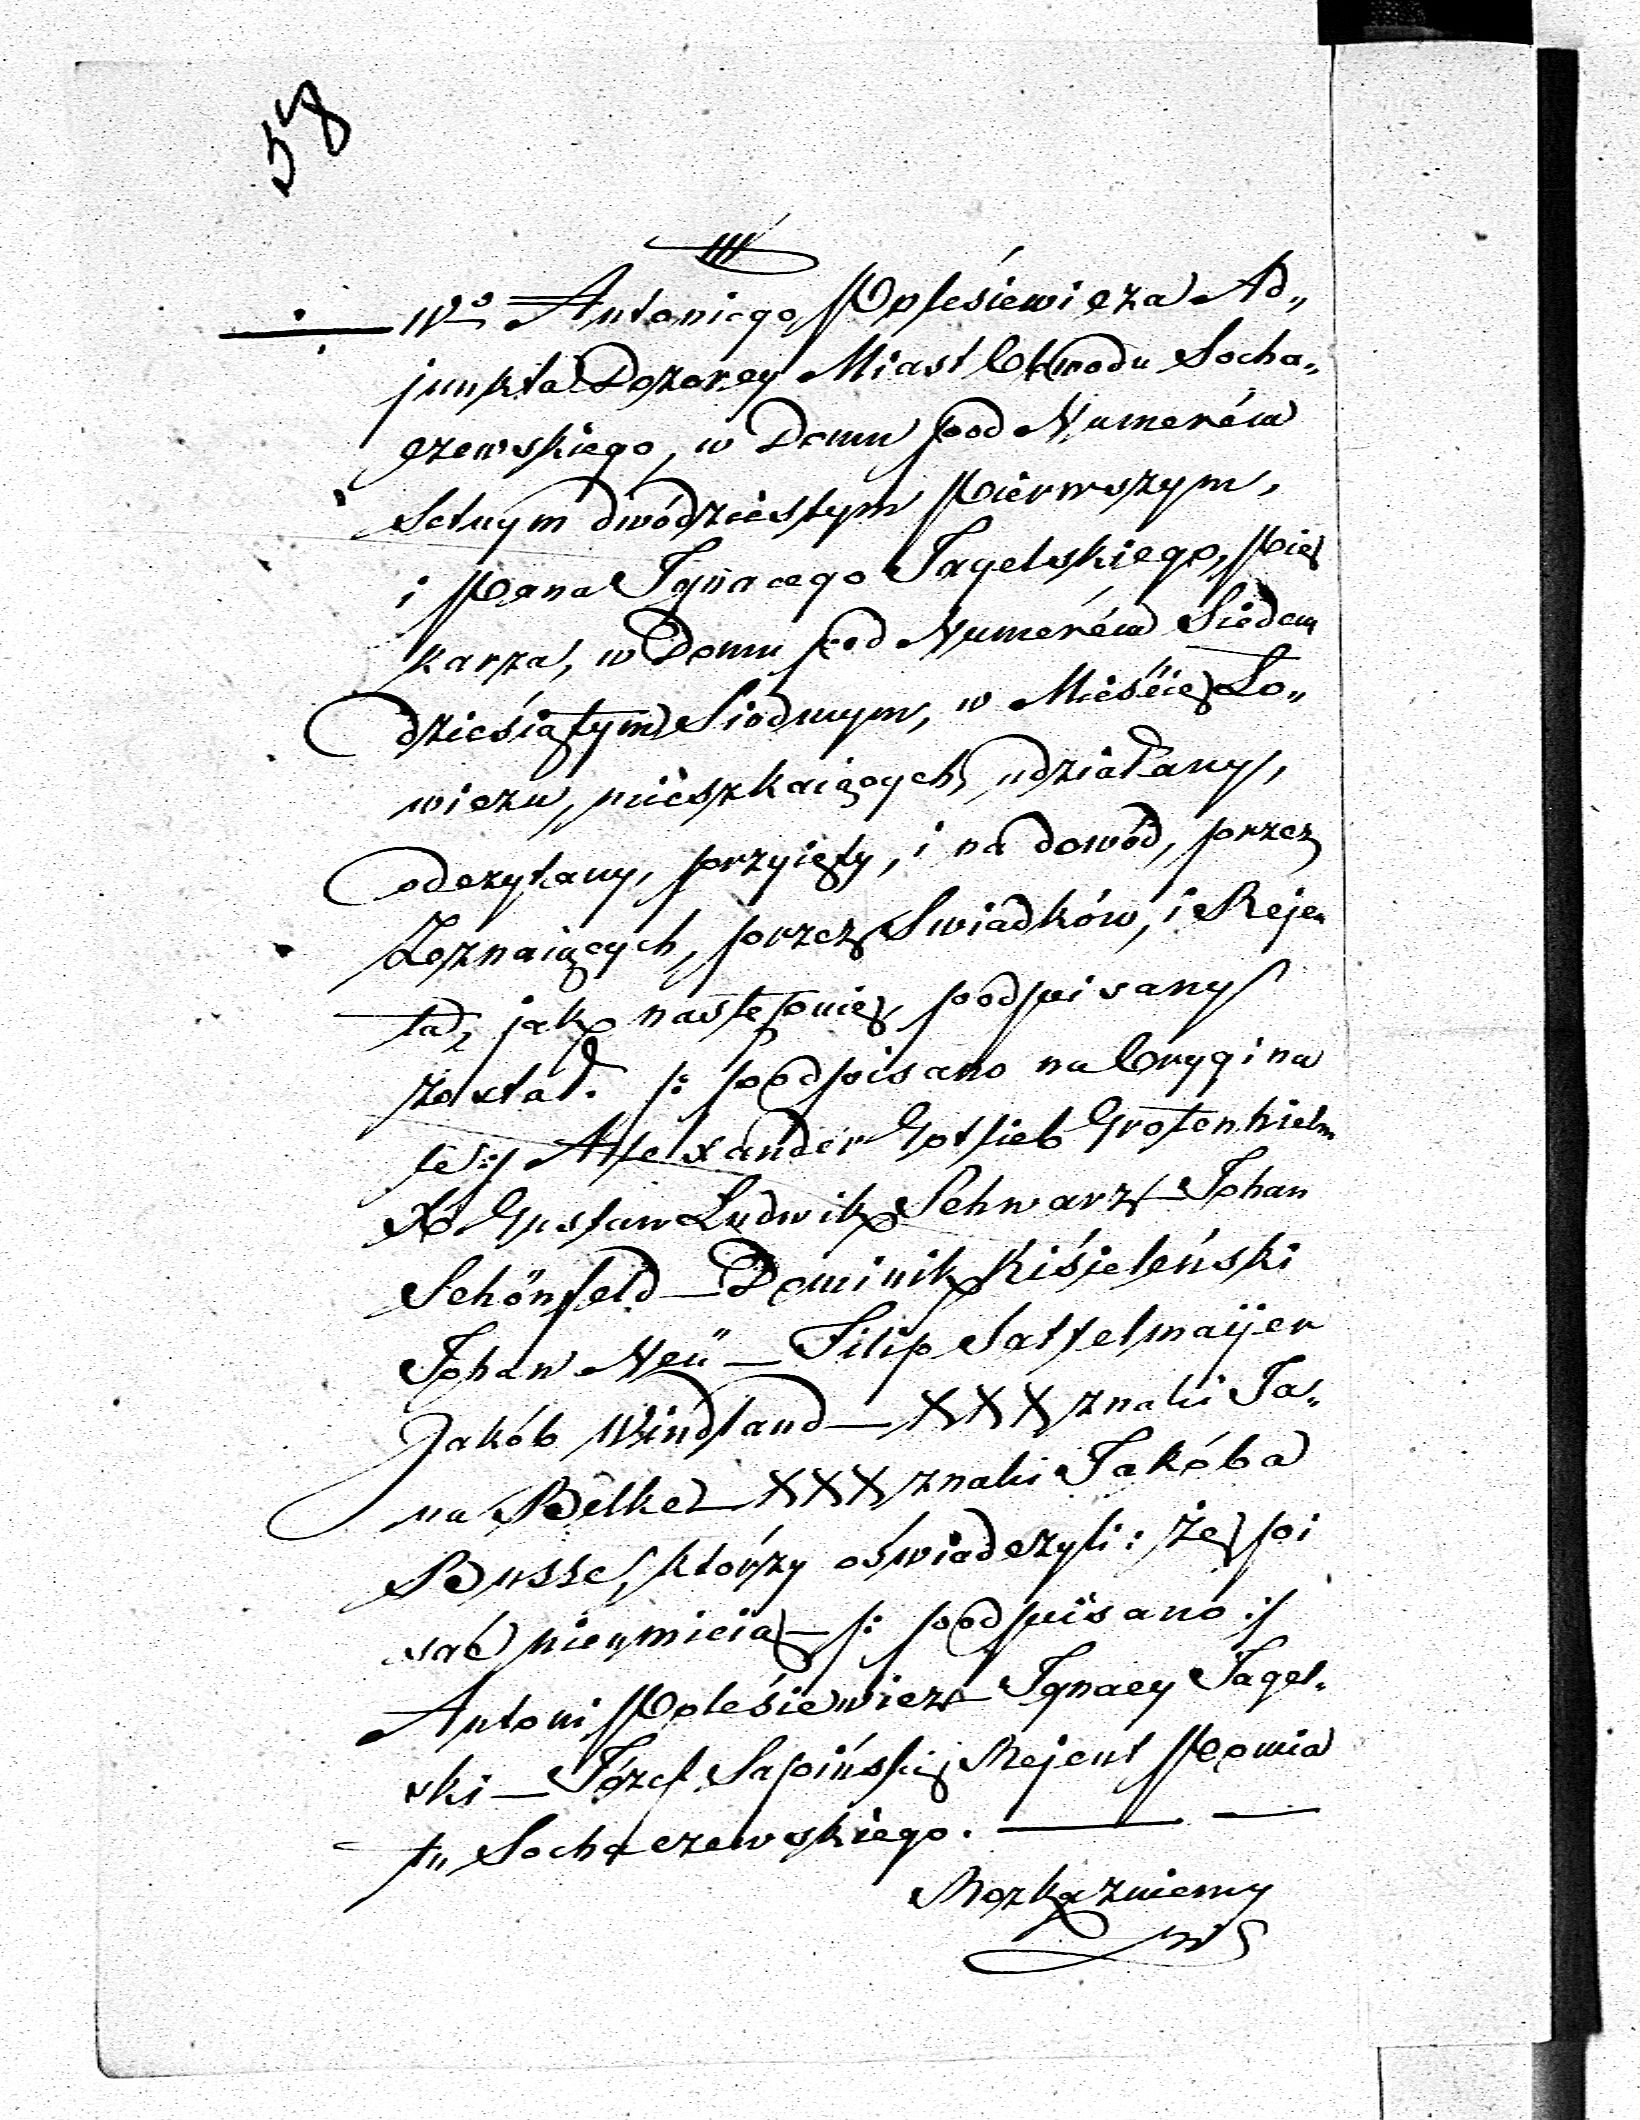 58
W° Antoniego Poleśiewicza Ad„
junkta Dozorcy Miast Obwodu Socha„
czewskiego, w Domu pod Numerém
Setnym dwódziestym Pierwszym,
i Pana Ignacego Jagelskiego, Pie
karza, w Domu pod Numerém Siedem
dziesiątym Siodmym, w Mieście Ło„
wiczu, mieszkaiących, udziałany,
odczytany, przyięty, i na dowód, przez
Zeznaiących, przez Swiadków, i Reje„
ta, jak następuie, podpisany
został. /: podpisano na Orygina
le :/ Alexander Gotlieb Grotenhielm
X Gustaw Ludwik Schwarz — Johan
Schönfeld — Dominik Kiśieleński
Johan Neü — Filip Sattelmaÿer
Jakób Windland — XXX znaki Ja„
na Belke — XXX znaki Jakóba
Busse, którzy oświadczyli: że pi
sać nieumieią — /: podpisano :/
Antoni Poleśiewicz — Ignacy Jagel„
ski — Józef Łapiński Rejent Powia
tu Sochaczewskiego.
Rozkazuiemy